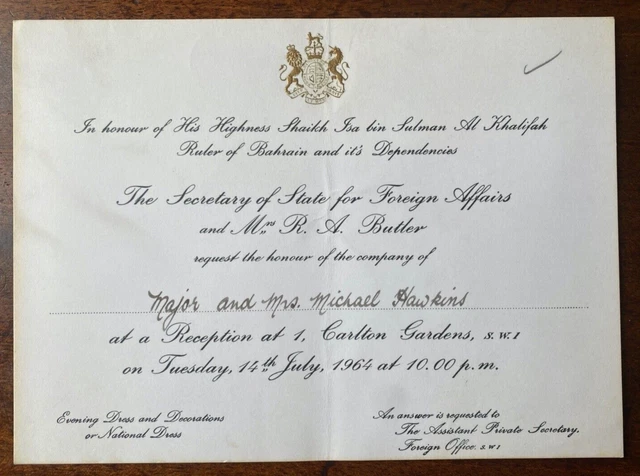 In honour of His Highness Shaikh Isa bin Sulman Al Khalifah
Ruler of Bahrain and it's Dependencies
The Secretary of State for Foreign Affairs
and Mrs R. A. Butler
request the honour of the company of
Major and Mrs. Michael Hawkins
at a Reception at 1, Carlton Gardens, S.W.1
on Tuesday, 14th July, 1964 at 10.00 p.m.
Evening Dress and Decorations
or National Dress
An answer is requested to
The Assistant Private Secretary,
Foreign Office. S.W.1